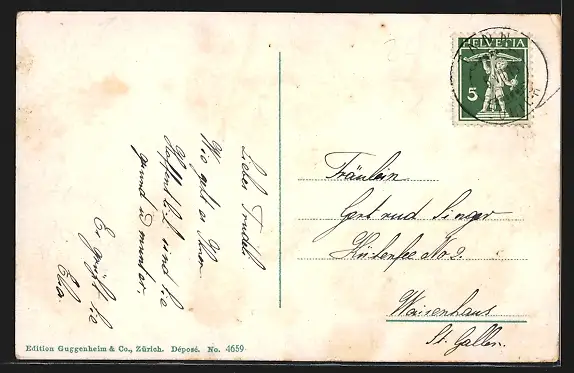 HELVETIA
5
Liebe Trudi!
Wie geht es Ihnen.
Hoffentlich sind Sie
gesund & munter.
Es grüsst Sie
Fräulein
Gertrud Singer
No 2.
Waisenhaus
St. Gallen.
Edition Guggenheim & Co., Zürich. Déposé. No. 4659